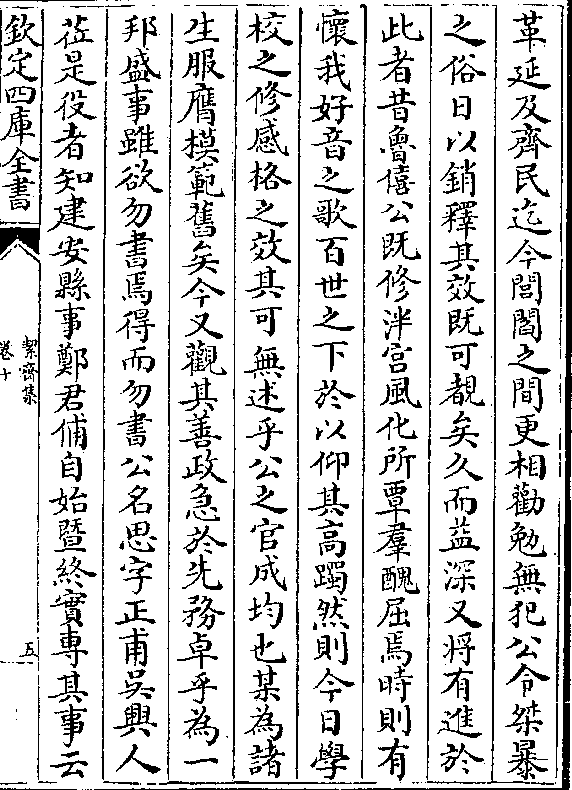 革延及齊民迄今閭閻之間更相勸勉無犯公令桀暴
之俗日以銷釋其效既可覩矣久而益深又將有進於
此者昔魯僖公既修泮宫風化所覃羣醜屈焉時則有
懷我好音之歌百世之下於以仰其高躅然則今日學
校之修感格之效其可無述乎公之官成均也某為諸
生服膺模範舊矣今又觀其善政急於先務卓乎為一
邦盛事雖欲勿書焉得而勿書公名思字正甫吳興人
莅是役者知建安縣事鄭君俌自始暨終實專其事云
欽定四庫全書
絜齋集
卷十
五